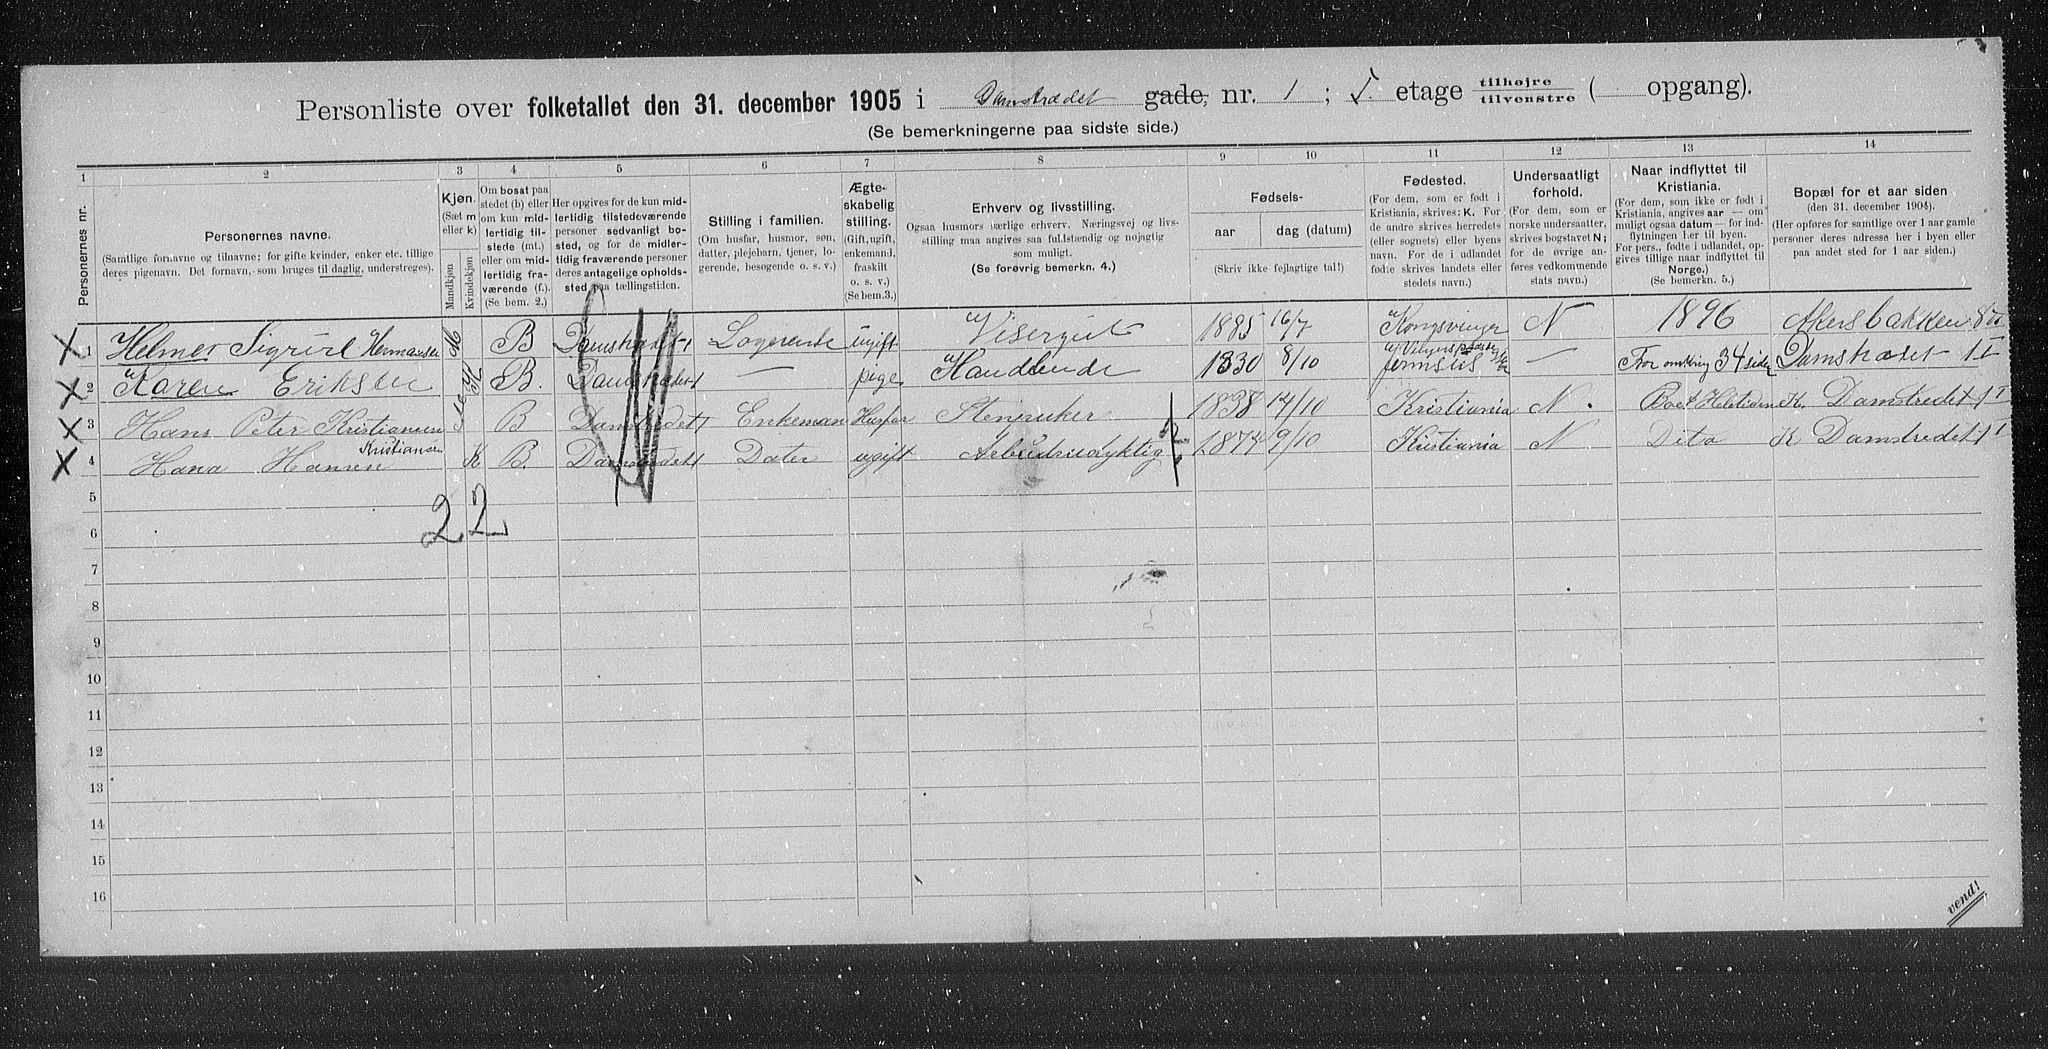 Personliste over folketallet den 31. december 1905 i Damstrædet gade, nr. 1 ; I. etage tilhøjre tilvenstre ( opgang).
(Se bemerkningerne paa sidste side.)
1 2 3 4 5 6 7 8 9 10 11 12 13 14
Personernes nr.
Personernes navne.
(Samtlige fornavne og tilnavne; for gifte kvinder, enker etc. tillige
deres pigenavn. Det fornavn, som bruges til daglig, understreges).
Kjøn.
(Sæt m
eller k)
Mandkjøn
Kvindekjøn
Om bosat paa
stedet (b) eller
om kun mid-
lertidig til-
stede (mt.)
eller om mid-
lertidig fra-
værende (f.).
(Se bem. 2.)
Her opgives for de kun mid-
lertidig tilstedeværende
personer sedvanlig bo-
sted, og for de midler-
tidig fraværende personer
deres antagelige opholds-
sted paa tællingstiden.
Stilling i familien.
(Om husfar, husmor, søn,
datter, plejebarn, tjener, lo-
gerende, besøgende o. s. v.)
Ægte-
skabelig
stilling.
(Gift, ugift,
enkemand,
fraskilt
o. s. v.)
(Se bem.3.)
Erhverv og livsstilling.
Ogsaa husmors særlige erhverv. Næringsvej og livs-
stilling maa angives saa fuldstændig og nøjagtig
som muligt.
(Se forøvrig bemerkn. 4.)
Fødsels-
aar
dag (datum)
(Skriv ikke fejlagtige tal!)
Fødested.
(For dem, som er født i
Kristiania, skrives: K. For
de andre skrives herredets
(eller sognets) eller byens
navn. For de i udlandet
fødte skrives landets eller
stedets navn.)
Undersaatligt
forhold.
(For dem, som er
norske undersaatter,
skrives bogstavet N;
for de øvrige an-
føres vedkommende
stats navn.)
Naar indflyttet til
Kristiania.
(For dem, som ikke er født i
Kristiania, angives aar — om
muligt ogsaa datum — for ind-
flytningen her til byen.
For pers., fødte i udlandet, op-
gives tillige naar indflyttet til
Norge.)
(Se bemerkn. 5.)
Bopæl for et aar siden
(den 31. december 1904).
(Her opføres for samtlige over 1 aar gamle
personer deres adresse her i byen eller
paa andet sted for 1 aar siden.)
X 1 Helmer Sigurd Hermansen M B Damstrædet 1 Logerende ugift Visergut 1885 16/7 Kongsvinger N 1896 Akersbakken
X 2 Karen Eriksen K B. Damstrædet 1 — pige Handlende 1830 8/10 — For omkring 34 siden Damstrædet 1 I
X 3 Hans Peter Kristiansen M B Damstredet 1 Enkeman Husfar Stenpuker 1838 17/10 Kristiania N . K. Damstredet 1 I
X 4 Hana Hansen Kristiansen K B. Damstredet 1 Dater ugift Arbeidsudyktig 1874 9/10 Kristiania N Dito K Damstredet 1 I
5
2 2
6
7
8
9
10
11
12
13
14
15
16
vend!